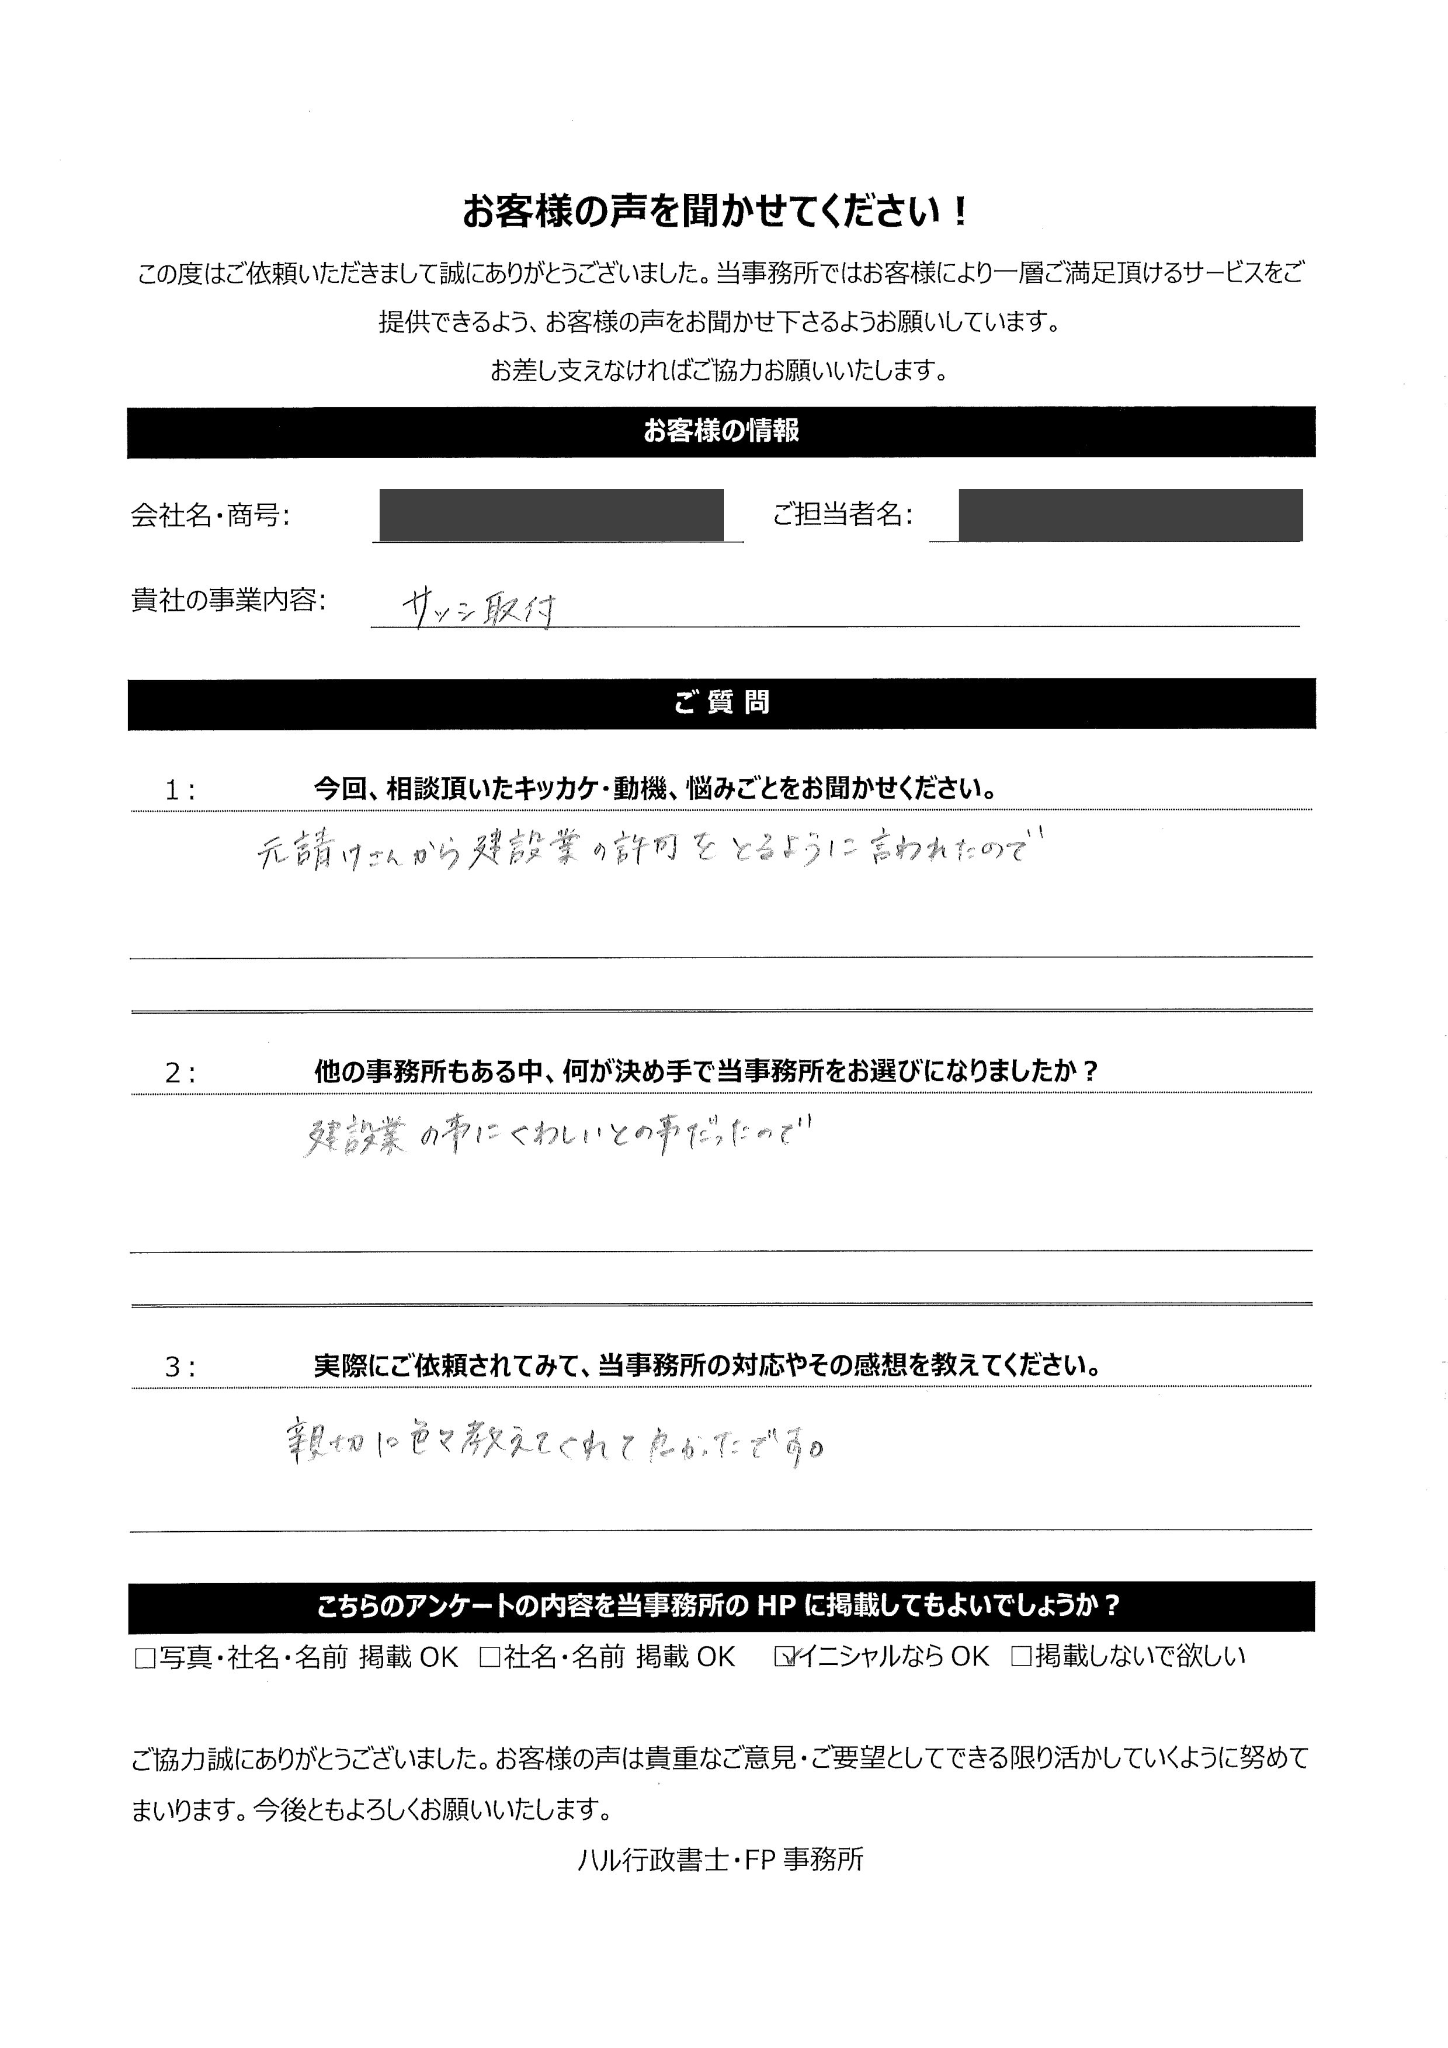 お客様の声を聞かせてください！
この度はご依頼いただきまして誠にありがとうございました。当事務所ではお客様により一層ご満足頂けるサービスをご
提供できるよう、お客様の声をお聞かせ下さるようお願いしています。
お差し支えなければご協力お願いいたします。
お客様の情報
会社名・商号： ご担当者名：
貴社の事業内容： サッシ取付
ご 質 問
1： 今回、相談頂いたキッカケ・動機、悩みごとをお聞かせください。
元請けさんから建設業の許可をとるように言われたので
2： 他の事務所もある中、何が決め手で当事務所をお選びになりましたか？
建設業の事にくわしいとの事だったので
3： 実際にご依頼されてみて、当事務所の対応やその感想を教えてください。
親切に色々教えてくれて良かったです。
こちらのアンケートの内容を当事務所の HP に掲載してもよいでしょうか？
□写真・社名・名前 掲載 OK □社名・名前 掲載 OK ☑イニシャルなら OK □掲載しないで欲しい
ご協力誠にありがとうございました。お客様の声は貴重なご意見・ご要望としてできる限り活かしていくように努めて
まいります。今後ともよろしくお願いいたします。
ハル行政書士・FP 事務所